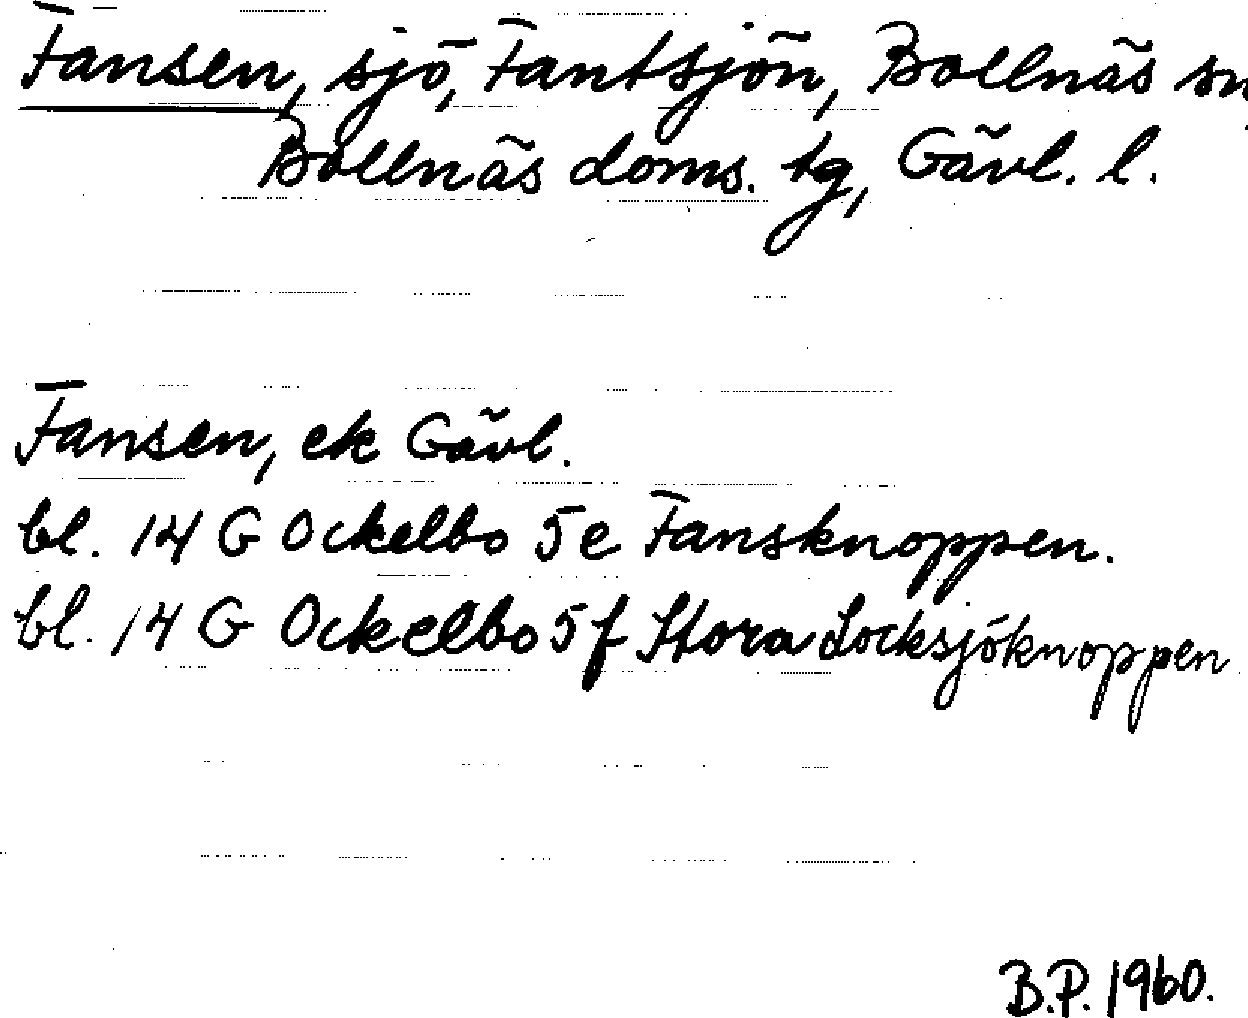 Fansen, sjö, Fantsjön, Bollnäs sn
Bollnäs doms. tg, Gävl. l.
Fansen, ek Gävl.
bl. 14 G Ockelbo 5e Fansknoppen.
bl. 14 G Ockelbo 5f Stora Locksjöknoppen
B.P. 1960.